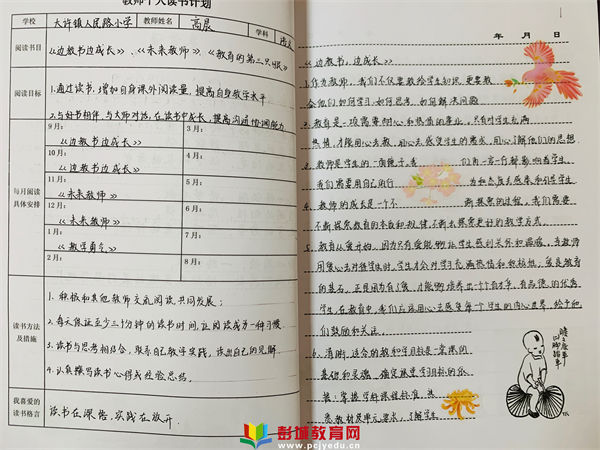 教师个人读书计划
学校
大许镇人民路小学
教师姓名
高晨
学科
语文
阅读书目
《边教书边成长》、《未来教师》、《教育的第三只眼》
阅读目标
1.通过读书,增加自身课外阅读量,提高自身教学水平
2.与好书相伴,与大师对话,在读书中成长,提高沟通协调能力
每月阅读
具体安排
9月:
《边教书边成长》
10月:
《边教书边成长》
11月:
《未来教师》
12月:
《未来教师》
1月:
《教学勇气》
2月:
3月:
4月:
5月:
6月:
7月:
8月:
读书方法
及措施
1.积极和其他教师交流阅读,共同发展;
2.每天保证至少三十分钟的读书时间,让阅读成为一种习惯.
3.读书与思考相结合,联系自己教学实践,读出自己的见解.
4.认真撰写读书心得或经验总结.
我喜爱的
读书格言
读书在深告,实践在放开.
年 月 日
《边教书,边成长》
1.作为教师,我们不仅要教给学生知识,更要教
会他们如何学习,如何思考,如何解决问题
2.教育是一项需要耐心和热情的事业,只有对学生充满
热情,才能用心去教,用心去感受学生的需求,用心了解他们的思想.
3.教师是学生的一面镜子,
们的一言一行都影响着学生,
我们需要用自己的行
为和态度去感染和引导学生
4.教师的成长是一个不
断探索的过程,我们需要
不断探索教育的本质和规律,不断去探索更好的教学方式
5.教育以爱开始,因为只有爱能够让学生感到关怀和温暖,当教师
用爱心去对待学生时,学生才会对学习充满热情和积极性,爱是教育
的基石,正是因为有了爱,才能够培养出一个个有才,有品德的优秀
学生,在教育中,我们应该用心去感受每个学生的内心世界,给予他
们鼓励和关注.
6.清晰,适合的教和学目标是一堂课的
基础和灵魂,确定教学学习目标的依
据:掌握学科课程标准,熟
悉教材及单元要求,了解学生
彭城教育网
www.pcjyedu.cn